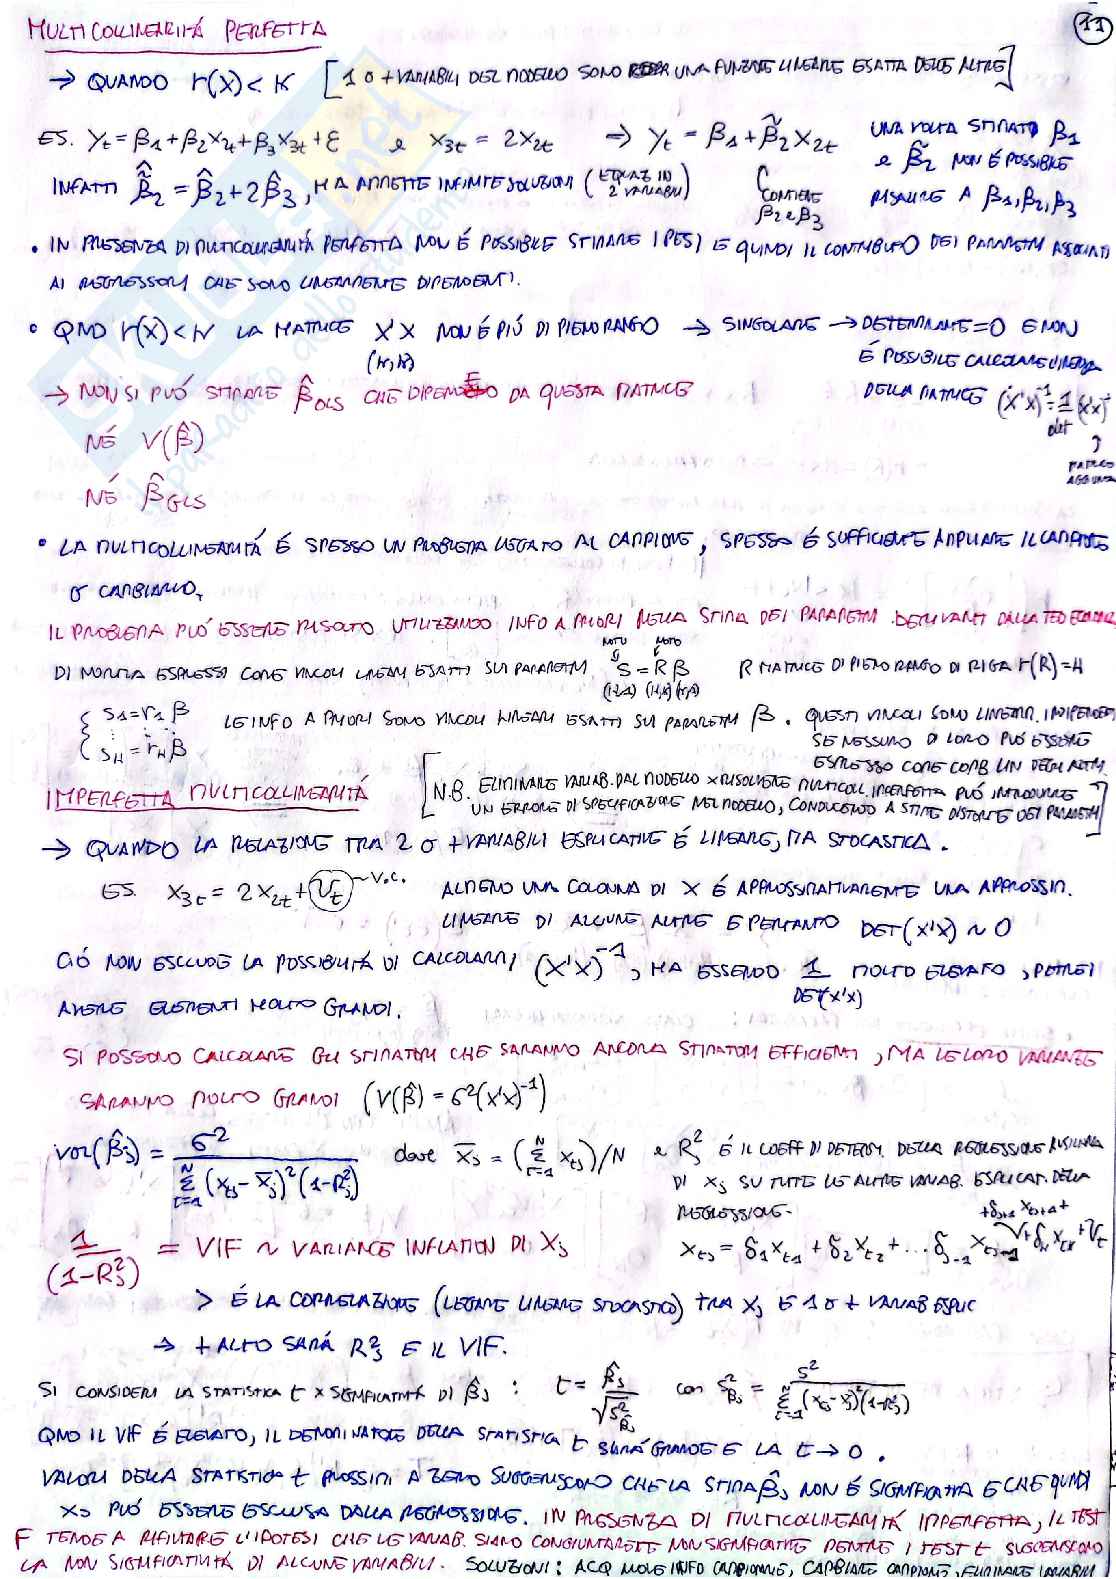 11
MULTICOLLINEARITÁ PERFETTA
→ QUANDO r(X) < K [1 o + VARIABILI DEL MODELLO SONO UNA FUNZIONE LINEARE ESATTA DELLE ALTRE]
ES. yt = β1 + β2 X2t + β3 X3t + ε e X3t = 2X2t ⇒ yt = β1 + β̃2 X2t UNA VOLTA STIMATO β1
e β̃2 NON É POSSIBILE
RISALIRE A β1, β2, β3
INFATTI β̃̂2 = β̂2 + 2β̂3, MA AMMETTE INFINITE SOLUZIONI (EQUAZ IN 2 VARIABILI)
CONTIENE β2 e β3
• IN PRESENZA DI MULTICOLLINEARITÁ PERFETTA NON É POSSIBILE STIMARE I PESI E QUINDI IL CONTRIBUTO DEI PARAMETRI ASSOCIATI
AI REGRESSORI CHE SONO LINEARMENTE DIPENDENTI.
• QND r(X) < K LA MATRICE X'X NON É PIÚ DI PIENO RANGO → SINGOLARE → DETERMINANTE = 0 E NON
(K,K)
É POSSIBILE CALCOLARE L'INVERSA
DELLA MATRICE (X'X)⁻¹ = 1/det (X'X)
MATRICE AGGIUNTA
→ NON SI PUÓ STIMARE β̂OLS CHE DIPENDE DA QUESTA MATRICE
NÉ V(β̂)
NÉ β̂GLS
• LA MULTICOLLINEARITÁ É SPESSO UN PROBLEMA LEGATO AL CAMPIONE, SPESSO É SUFFICIENTE AMPLIARE IL CAMPIONE
O CAMBIARLO.
IL PROBLEMA PUÓ ESSERE RISOLTO UTILIZZANDO INFO A PRIORI NELLA STIMA DEI PARAMETRI DERIVANTI DALLA TEO
DI NORMA ESPRESSI COME VINCOLI LINEARI ESATTI SUI PARAMETRI S = R β R MATRICE DI PIENO RANGO DI RIGA r(R) = H
NOTO NOTO
(H,1) (H,K) (K,1)
{ S1 = r1 β
⋮
SH = rH β
LE INFO A PRIORI SONO VINCOLI LINEARI ESATTI SUI PARAMETRI β. QUESTI VINCOLI SONO LINEARM. INDIPENDENTI
SE NESSUNO DI LORO PUÓ ESSERE
ESPRESSO COME COMB LIN DEGLI ALTRI
IMPERFETTA MULTICOLLINEARITÁ
[N.B. ELIMINARE VARIAB. DAL MODELLO X RISOLVERE MULTICOLL. IMPERFETTA PUÓ INTRODURRE
UN ERRORE DI SPECIFICAZIONE NEL MODELLO, CONDUCENDO A STIME DISTORTE DEI PARAMETRI]
→ QUANDO LA RELAZIONE TRA 2 O + VARIABILI ESPLICATIVE É LINEARE, MA STOCASTICA.
ES. X3t = 2X2t + Vt ~ V.C. ALMENO UNA COLONNA DI X É APPROSSIMATIVAMENTE UNA APPROSSIM.
LINEARE DI ALCUNE ALTRE E PERTANTO DET(X'X) ~ 0
CIÓ NON ESCLUDE LA POSSIBILITÁ DI CALCOLARMI (X'X)⁻¹, MA ESSENDO 1/DET(X'X) MOLTO ELEVATO, POTREI
AVERE ELEMENTI MOLTO GRANDI.
SI POSSONO CALCOLARE GLI STIMATORI CHE SARANNO ANCORA STIMATORI EFFICIENTI, MA LE LORO VARIANZE
SARANNO MOLTO GRANDI (V(β̂) = σ²(X'X)⁻¹)
var(β̂j) = σ² / Σ t=1 N (xtj - x̄j)² (1-Rj²) dove x̄j = (Σ t=1 N xtj)/N e Rj² É IL COEFF DI DETERM. DELLA REGRESSIONE AUSILIARIA
DI Xj SU TUTTE LE ALTRE VARIAB. ESPLICAT. DELLA
REGRESSIONE.
1/(1-Rj²) = VIF ~ VARIANCE INFLATION DI Xj
Xtj = δ1 Xt1 + δ2 Xt2 + ... δj-1 Xtj-1 + δj+1 Xtj+1 + + δK XtK + Vt
> É LA CORRELAZIONE (LEGAME LINEARE STOCASTICO) TRA Xj E 1 O + VARIAB ESPLIC
→ + ALTO SARÁ Rj² E IL VIF.
SI CONSIDERI LA STATISTICA t X SIGNIFICATIVITÁ DI β̂j : t = β̂j / √S²β̂j con S²β̂j = S² / Σ t=1 N (xtj - x̄j)² (1-Rj²)
QND IL VIF É ELEVATO, IL DENOMINATORE DELLA STATISTICA t SARÁ GRANDE E LA t → 0.
VALORI DELLA STATISTICA t PROSSIMI A ZERO SUGGERISCONO CHE LA STIMA β̂j NON É SIGNIFICATIVA E CHE QUINDI
Xj PUÓ ESSERE ESCLUSA DALLA REGRESSIONE. IN PRESENZA DI MULTICOLLINEARITÁ IMPERFETTA, IL TEST
F TENDE A RIFIUTARE L'IPOTESI CHE LE VARIAB. SIANO CONGIUNTAMENTE NON SIGNIFICATIVE MENTRE I TEST t SUGGERISCONO
LA NON SIGNIFICATIVITÁ DI ALCUNE VARIABILI. SOLUZIONI: ACQ INFO CAMPIONARIE, CAMBIARE CAMPIONE, ELIMINARE VARIABILI